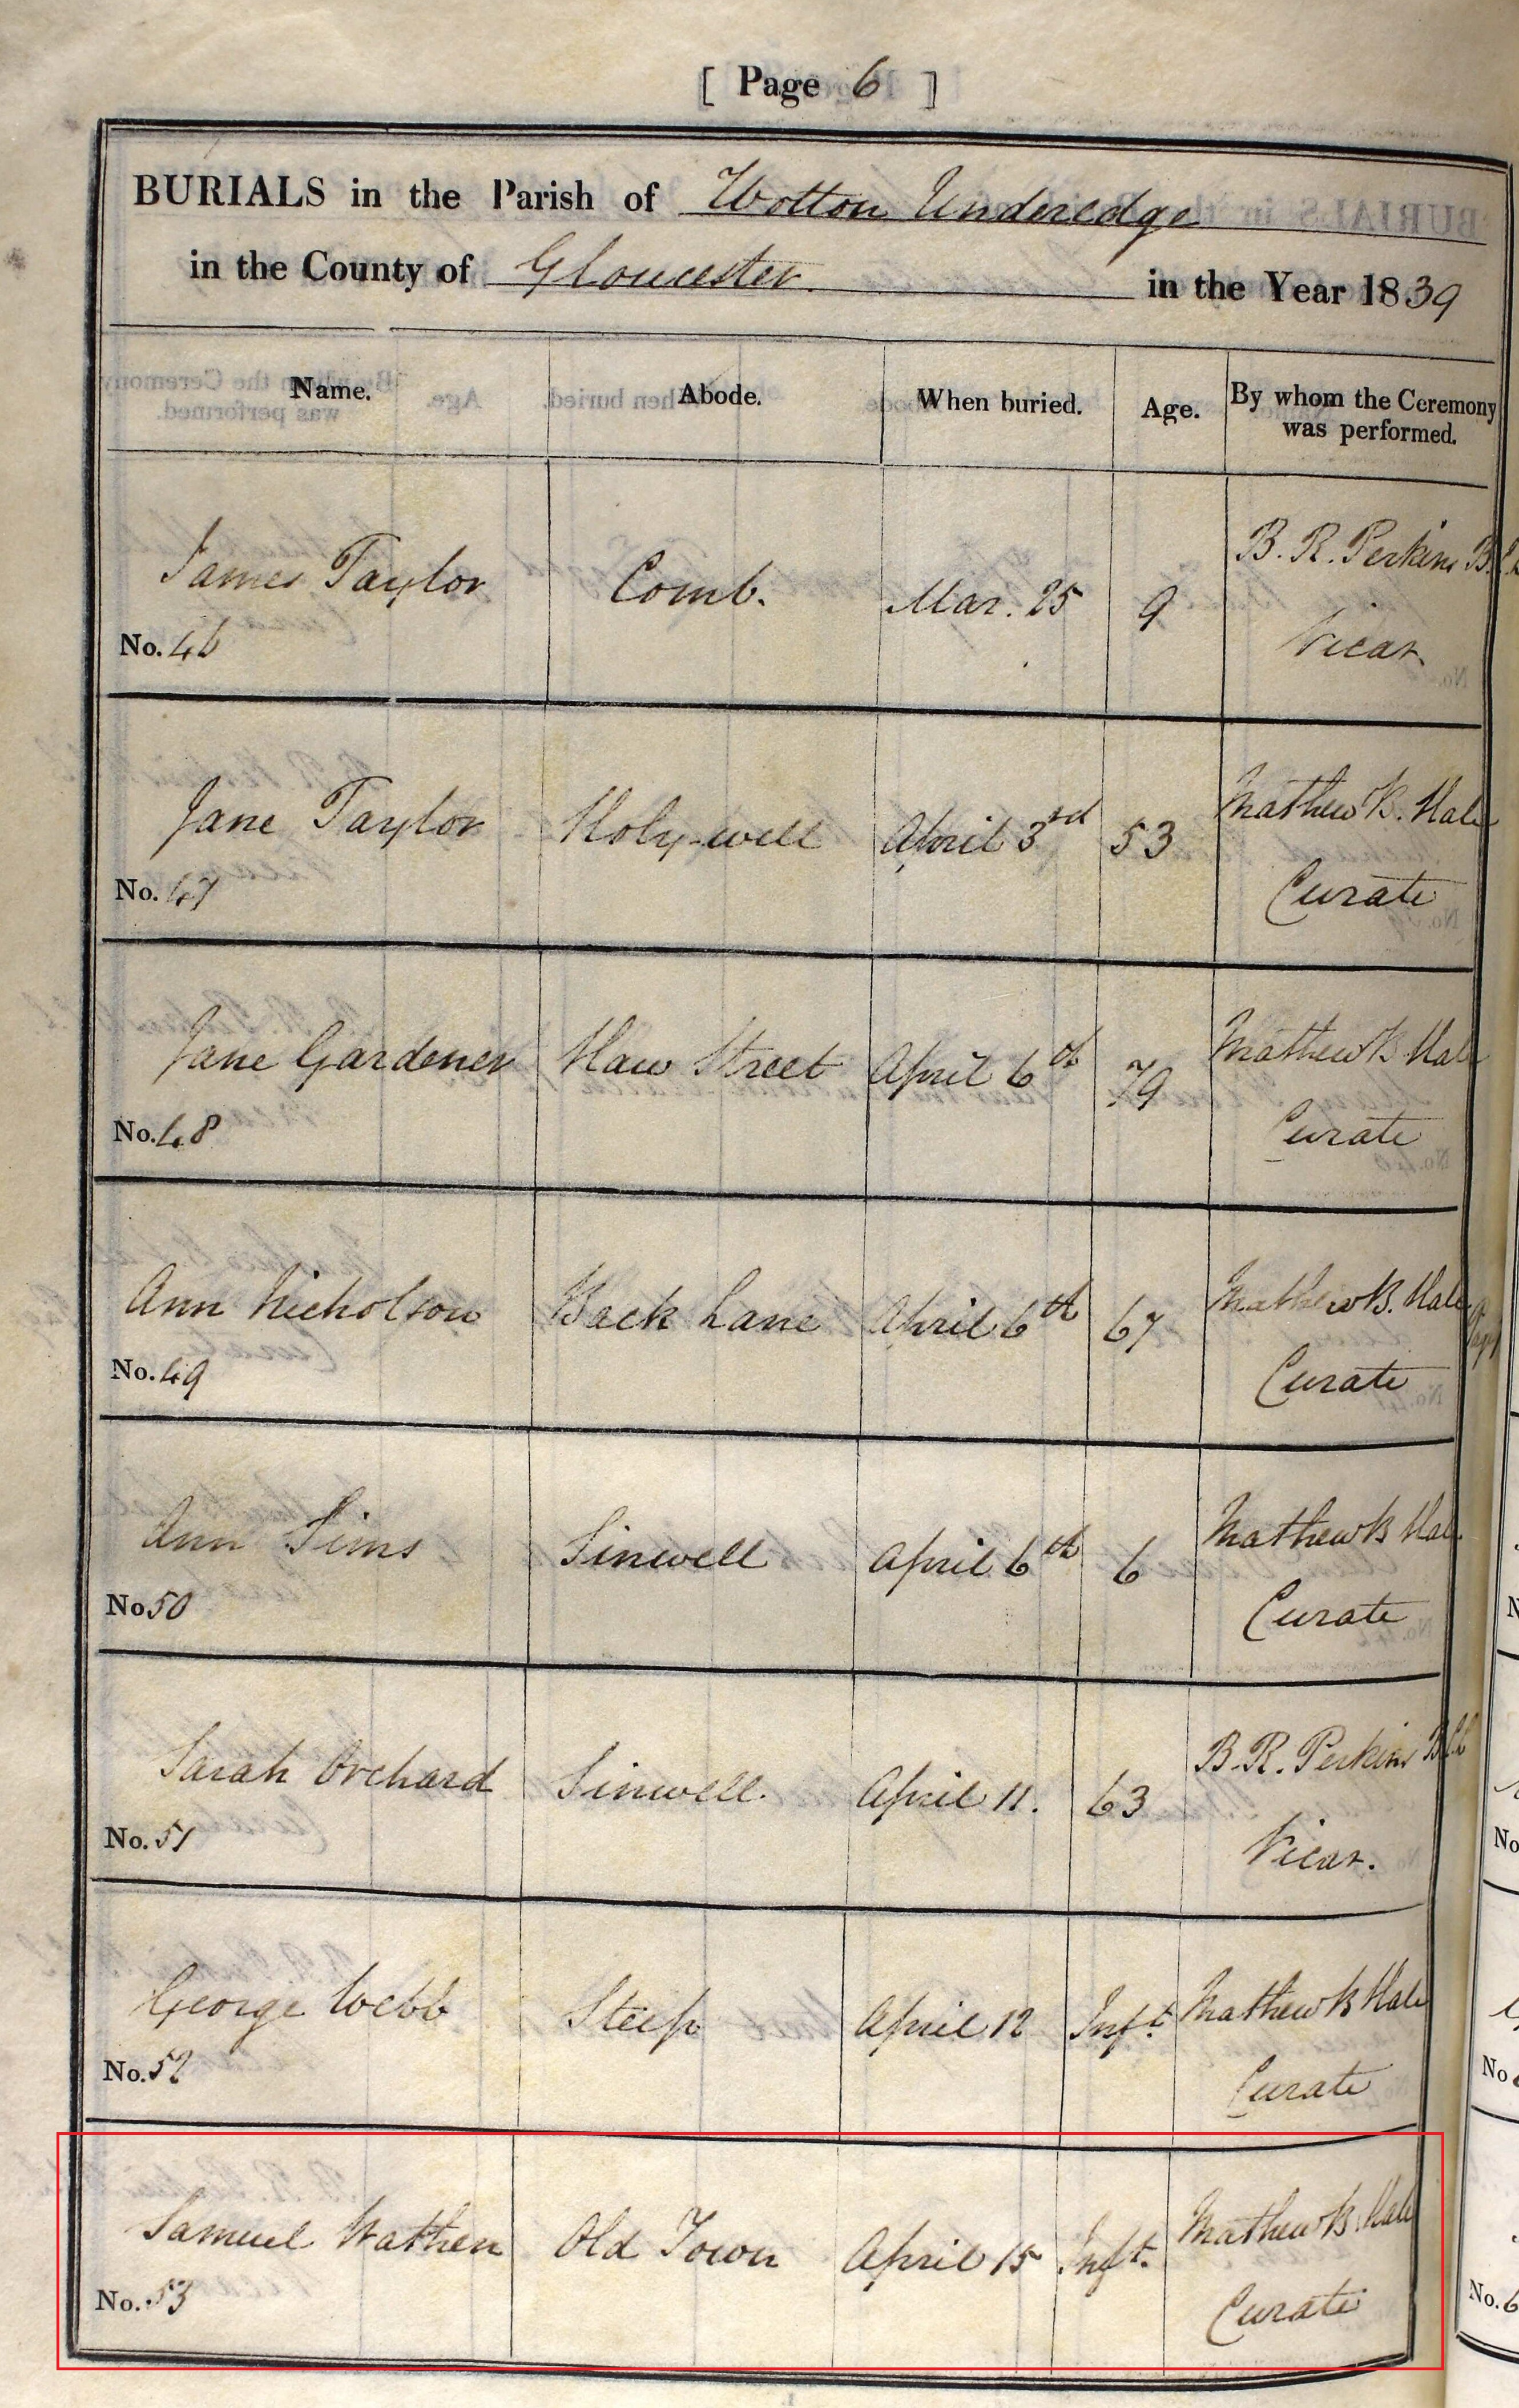 [ Page 6 ]
BURIALS in the Parish of Wotton Underedge
in the County of Gloucester in the Year 1839
Name. Abode. When buried. Age. By whom the Ceremony was performed.
James Taylor Comb. Mar. 25 9 B. R. Perkins
No. 46 Vicar.
Jane Taylor Holy-well April 3rd 53 Mathew B. Hale
No. 47 Curate
Jane Gardener Haw Street April 6th 79 Mathew B Hale
No. 48 Curate
Ann Nicholson Back Lane April 6th 67 Mathew B. Hale
No. 49 Curate
Ann Sims Sinwell April 6th 6 Mathew B Hale
No 50 Curate
Sarah Orchard Sinwell. April 11. 63 B. R. Perkins
No. 51 Vicar.
George Webb Steep April 12 Inft. Mathew B Hale
No. 52 Curate
Samuel Wathen Old Town April 15 Inft. Mathew B. Hale
No. 53 Curate